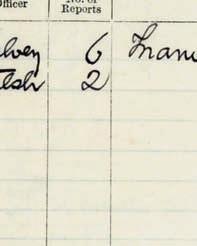 fficer No. of
Reports
lvey 6 Fran
elsh 2